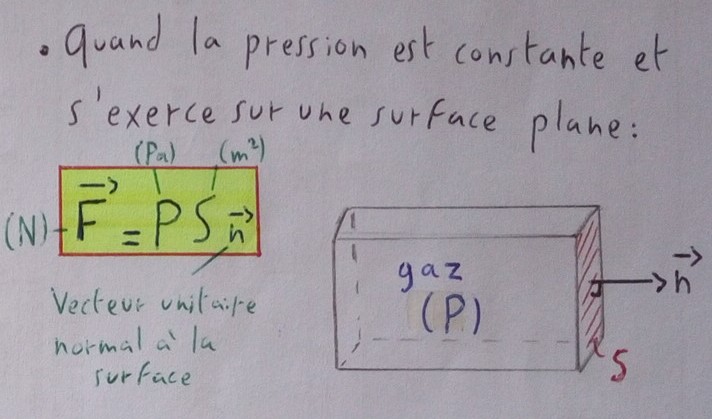 • Quand la pression est constante et
s'exerce sur une surface plane:
(Pa) (m²)
(N) F⃗ = P S n⃗
Vecteur unitaire
normal à la
surface
gaz
(P)
n⃗
S